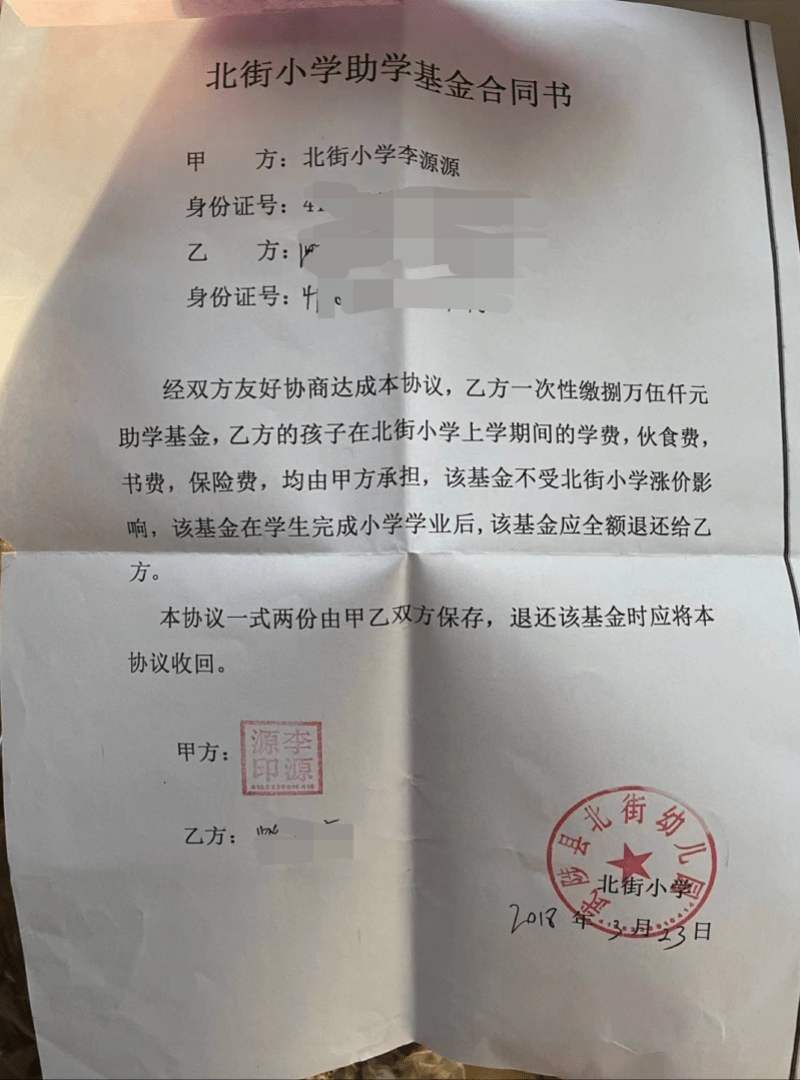 北街小学助学基金合同书
甲 方：北街小学李源源
身份证号：41
乙 方：
身份证号：41
经双方友好协商达成本协议，乙方一次性缴捌万伍仟元
助学基金，乙方的孩子在北街小学上学期间的学费，伙食费，
书费，保险费，均由甲方承担，该基金不受北街小学涨价影
响，该基金在学生完成小学学业后，该基金应全额退还给乙
方。
本协议一式两份由甲乙双方保存，退还该基金时应将本
协议收回。
甲方：
李源源印
乙方：
武陟县北街幼儿园
北街小学
2018 年 3 月 23 日